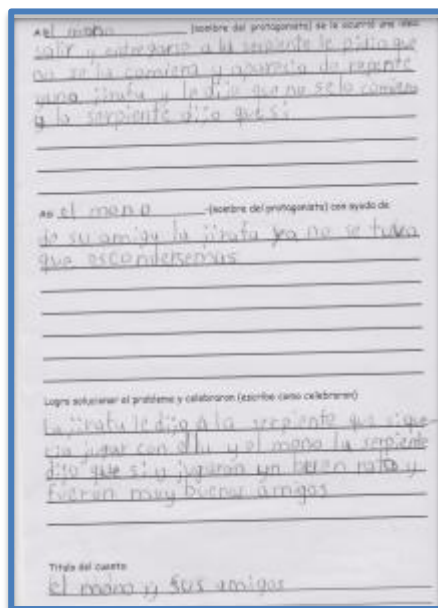 A el mono (nombre del protagonista) se le ocurrió una idea:
salir y entregarse a la serpiente le pidio que
no se la comiera y aparecio de repente
una jirafa y le dijo que no se lo comiera
y la serpiente dijo que si
Así el mono (nombre del protagonista) con ayuda de
de su amiga la jirafa ya no se tuvo
que escondersemas
Logro solucionar el problema y celebraron (escribe como celebraron)
La jirafa le dijo a la serpiente que si que
ria jugar con ella y el mono la serpiente
dijo que si y jugaron un buen rato y
fueron muy buenos amigos
Titulo del cuento
el mono y sus amigos